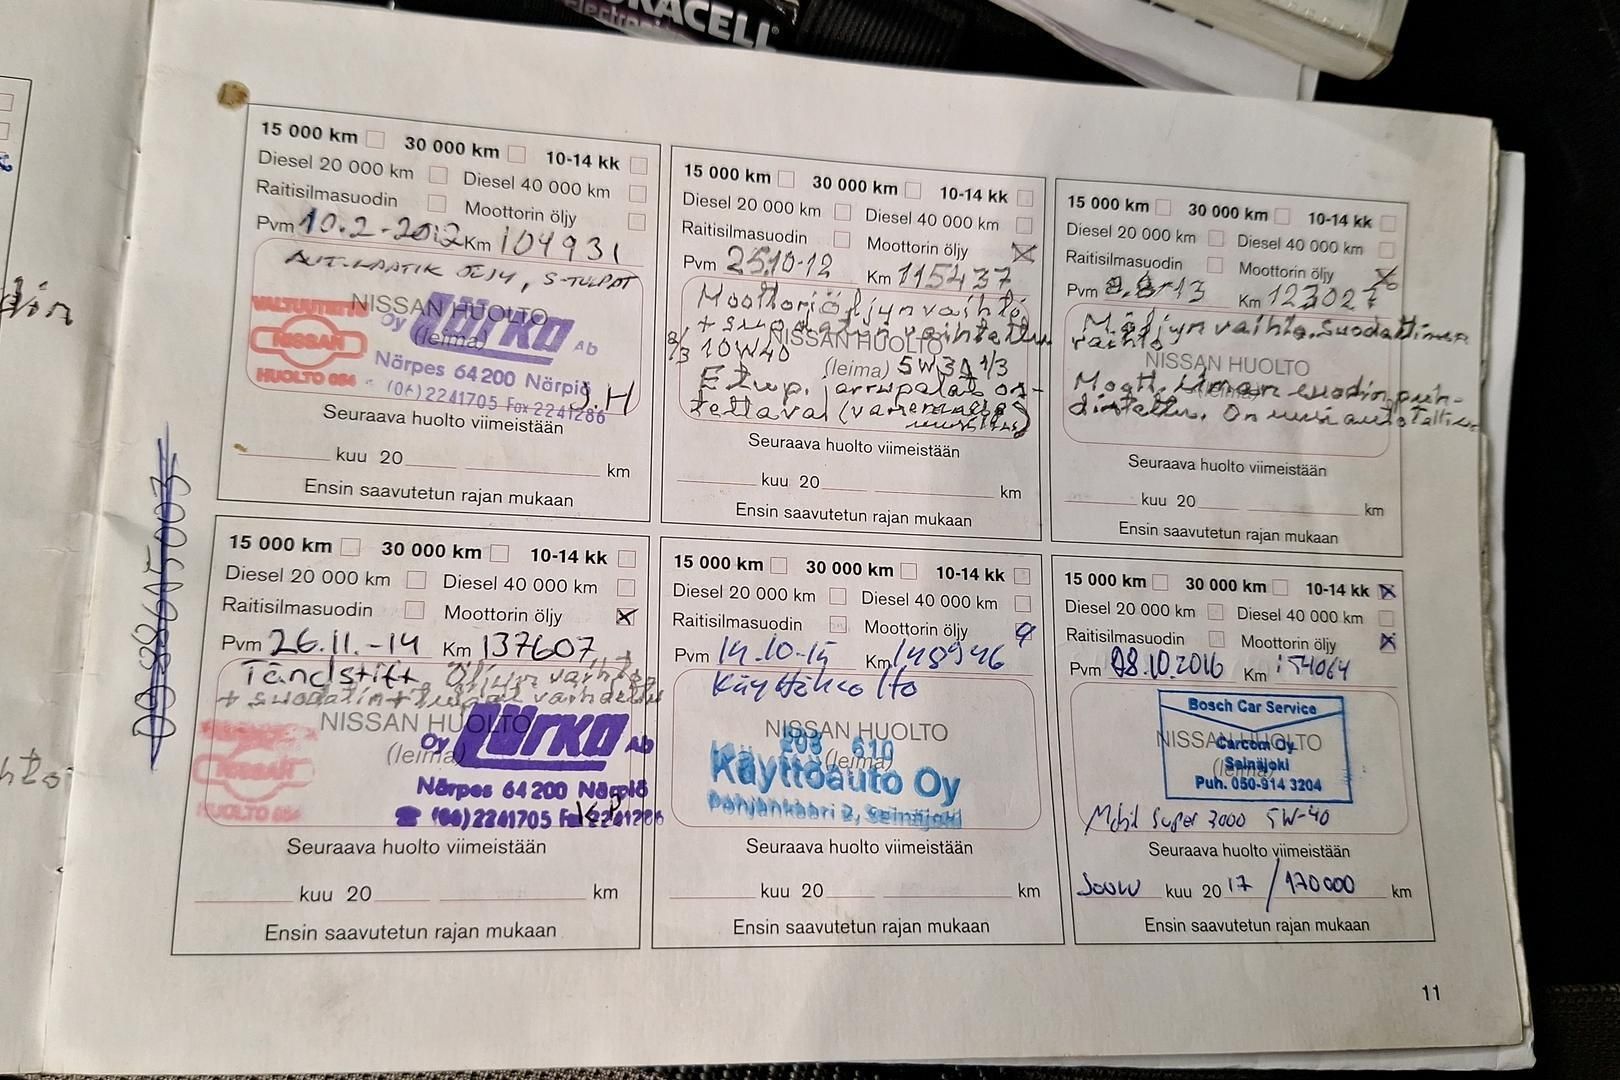 RACELL
Electronic
15 000 km 30 000 km 10-14 kk
Diesel 20 000 km Diesel 40 000 km
Raitisilmasuodin Moottorin öljy
Pvm 10.2-2012 Km 104931
AUT.LAATIK ÖLJY, S-TULPAT
VALTUUTETTU
NISSAN
HUOLTO 054
NISSAN HUOLTO
(leima)
Oy Lürka Ab
Närpes 64200 Närpiö
(06) 2241705 Fax 2241286
J.H
Seuraava huolto viimeistään
kuu 20 km
Ensin saavutetun rajan mukaan
15 000 km 30 000 km 10-14 kk
Diesel 20 000 km Diesel 40 000 km
Raitisilmasuodin Moottorin öljy
Pvm 25.10-12 Km 115437
Moottoriöljyn vaihto
+ suodatin vaihdettu
NISSAN HUOLTO
2/3 10W40 (leima) 5W30 1/3
Etup. jarrupalat on-
tettava
Seuraava huolto viimeistään
kuu 20 km
Ensin saavutetun rajan mukaan
15 000 km 30 000 km 10-14 kk
Diesel 20 000 km Diesel 40 000 km
Raitisilmasuodin Moottorin öljy
Pvm 13 Km 123027
M.öljyn vaihto. Suodattimen
vaihto
NISSAN HUOLTO
(leima)
Moott. ilman suodin puh-
distettu. On uusi
Seuraava huolto viimeistään
kuu 20 km
Ensin saavutetun rajan mukaan
15 000 km 30 000 km 10-14 kk
Diesel 20 000 km Diesel 40 000 km
Raitisilmasuodin Moottorin öljy
Pvm 26.11.-14 Km 137607
Tändstift. Öljyn vaihto
+ suodatin + tulpat vaihdettu
NISSAN HUOLTO
(leima)
NISSAN
HUOLTO 054
Oy Lürka Ab
Närpes 64200 Närpiö
(06) 2241705 Fax 2241286
K.P
Seuraava huolto viimeistään
kuu 20 km
Ensin saavutetun rajan mukaan
15 000 km 30 000 km 10-14 kk
Diesel 20 000 km Diesel 40 000 km
Raitisilmasuodin Moottorin öljy
Pvm 14.10-15 Km 148946
Käyttöhuolto
NISSAN HUOLTO
(leima)
203 610
Käyttöauto Oy
Pohjankaari 2, Seinäjoki
Seuraava huolto viimeistään
kuu 20 km
Ensin saavutetun rajan mukaan
15 000 km 30 000 km 10-14 kk
Diesel 20 000 km Diesel 40 000 km
Raitisilmasuodin Moottorin öljy
Pvm 08.10.2016 Km 154064
Bosch Car Service
NISSAN HUOLTO
(leima)
Carcom Oy
Seinäjoki
Puh. 050-914 3204
Mobil Super 3000 5W-40
Seuraava huolto viimeistään
Joulu kuu 20 17 / 170000 km
Ensin saavutetun rajan mukaan
11